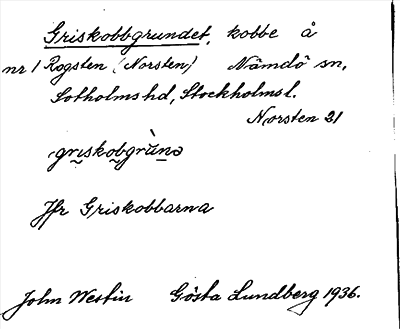 Griskobbgrundet, kobbe å
nr 1 Rogsten (Norsten) Nämdö sn,
Sotholms hd, Stockholms l.
Norsten 21
griskobgrùnə
Jfr Griskobbarna
John Westin Gösta Lundberg 1936.